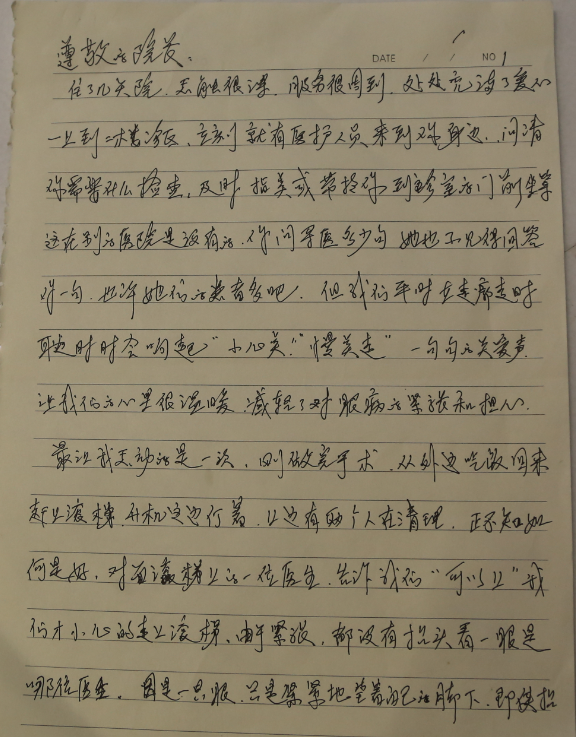 尊敬的院长：
DATE / / NO 1
住了几天院，态度很深，服务很周到，处处充满了爱心
一上到二楼诊区，立刻就有医护人员来到你身边，问清
你需要什么检查，及时指美或带投你到诊室的门前坐等
这在别的医院是没有的，你问导医多少句她也不见得回答
你一句，也许她们的患者多吧，但我们平时在走廊走时
耳边时时会响起"小心美！""慢美走"一句句的关爱声，
让我们的心里很温暖，减轻了对眼病的紧张和担心。
最让我感动的是一次，刚做完手术，从外边吃饭回来
起上滚梯，升机这边行着，上边有两个人在清理，正不知如
何是好，对面滚梯上的一位医生，告诉我们"可以上"我
们才小心的走上滚梯，由于紧张，都没有抬头看一眼是
哪位医生，因是一只眼，只是紧紧地望着自己的脚下，即使抬